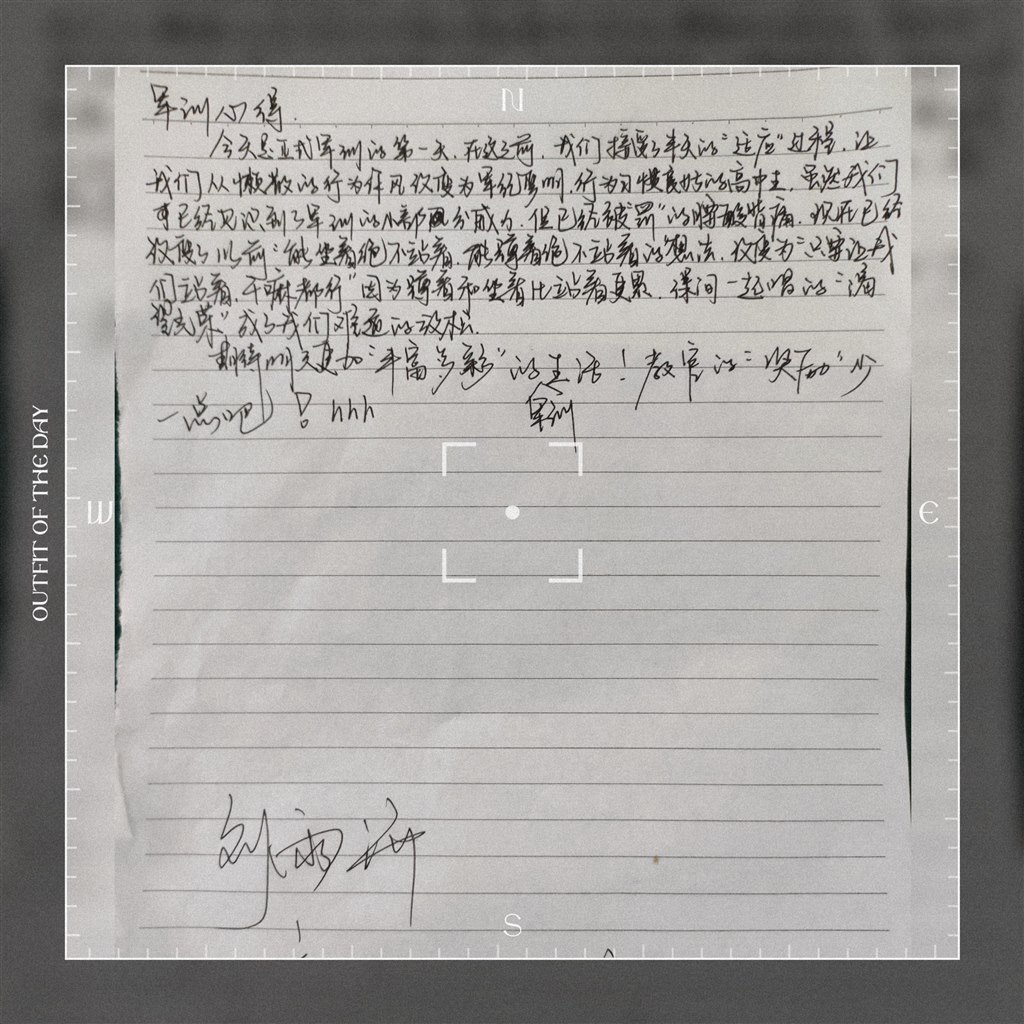 N
军训心得.
今天是正式军训的第一天,在这之前,我们接受了半天的"适应"过程,让
我们从懒散的行为作风改变为军纪严明,行为习惯良好的高中生,虽然我们
才已经见识到了军训的小部分威力,但已经被罚的腰酸背痛,现在已经
改变了以前"能坐着绝不站着,能躺着绝不站着的想法,改变为"只要让我
们站着,干嘛都行"因为蹲着和坐着比站着更累,课间一起唱的"满
成了我们难忘的放松.
期待明天更加"丰富多彩"的军训生活!教官的"奖励"少
一点吧!hhh
W
E
OUTFIT OF THE DAY
刘雨
S